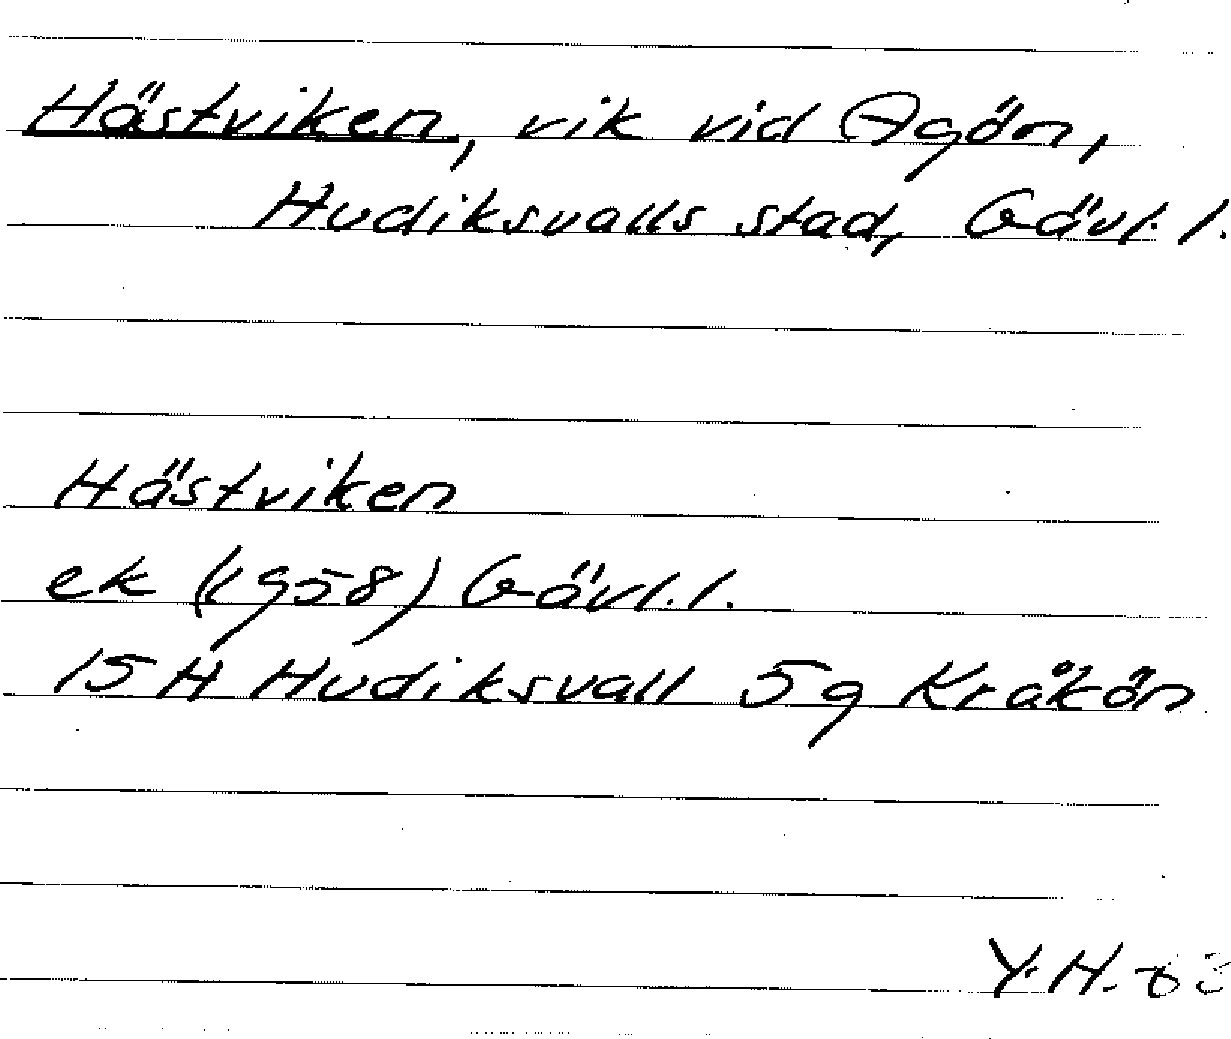 Hästviken, vik vid Agön,
Hudiksvalls stad, Gävl. l.
Hästviken
ek (1958) Gävl. l.
15 H Hudiksvall 5 g Kråkön
Y. H.